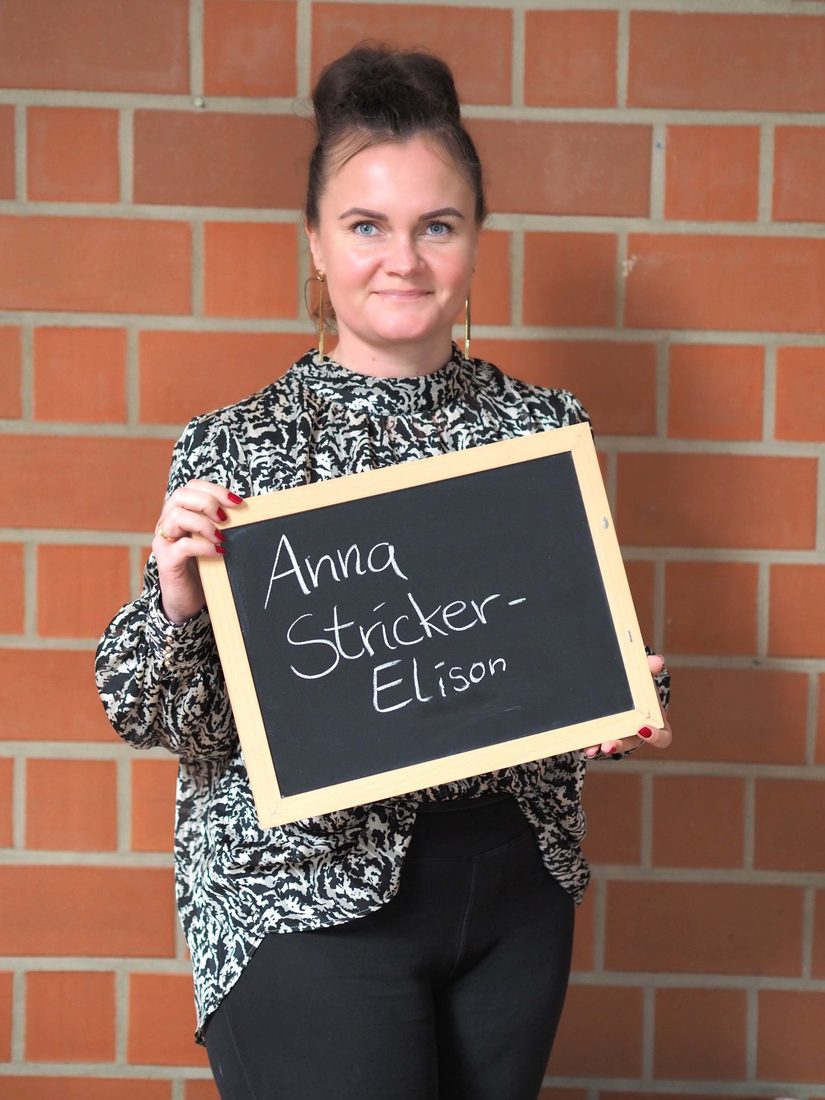 Anna
Stricker-
Elison